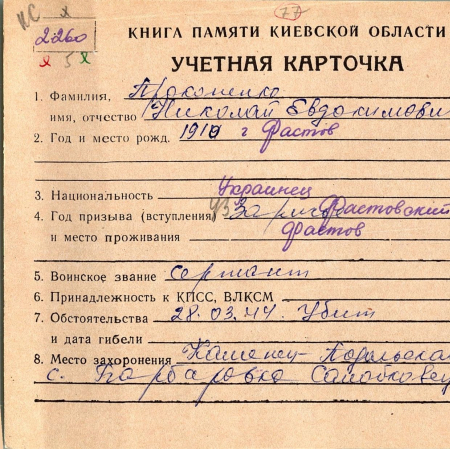 КС х
77
2260
х 5 х
КНИГА ПАМЯТИ КИЕВСКОЙ ОБЛАСТИ
УЧЕТНАЯ КАРТОЧКА
1. Фамилия, Прокопенко
имя, отчество Николай Евдокимови
2. Год и место рожд. 1910 г Фастов
3. Национальность Украинец
4. Год призыва (вступления) Фастовский
и место проживания Фастов
5. Воинское звание сержант
6. Принадлежность к КПСС, ВЛКСМ
7. Обстоятельства 28.03.44. Убит
и дата гибели
8. Место захоронения Каменец-Подольска
с.